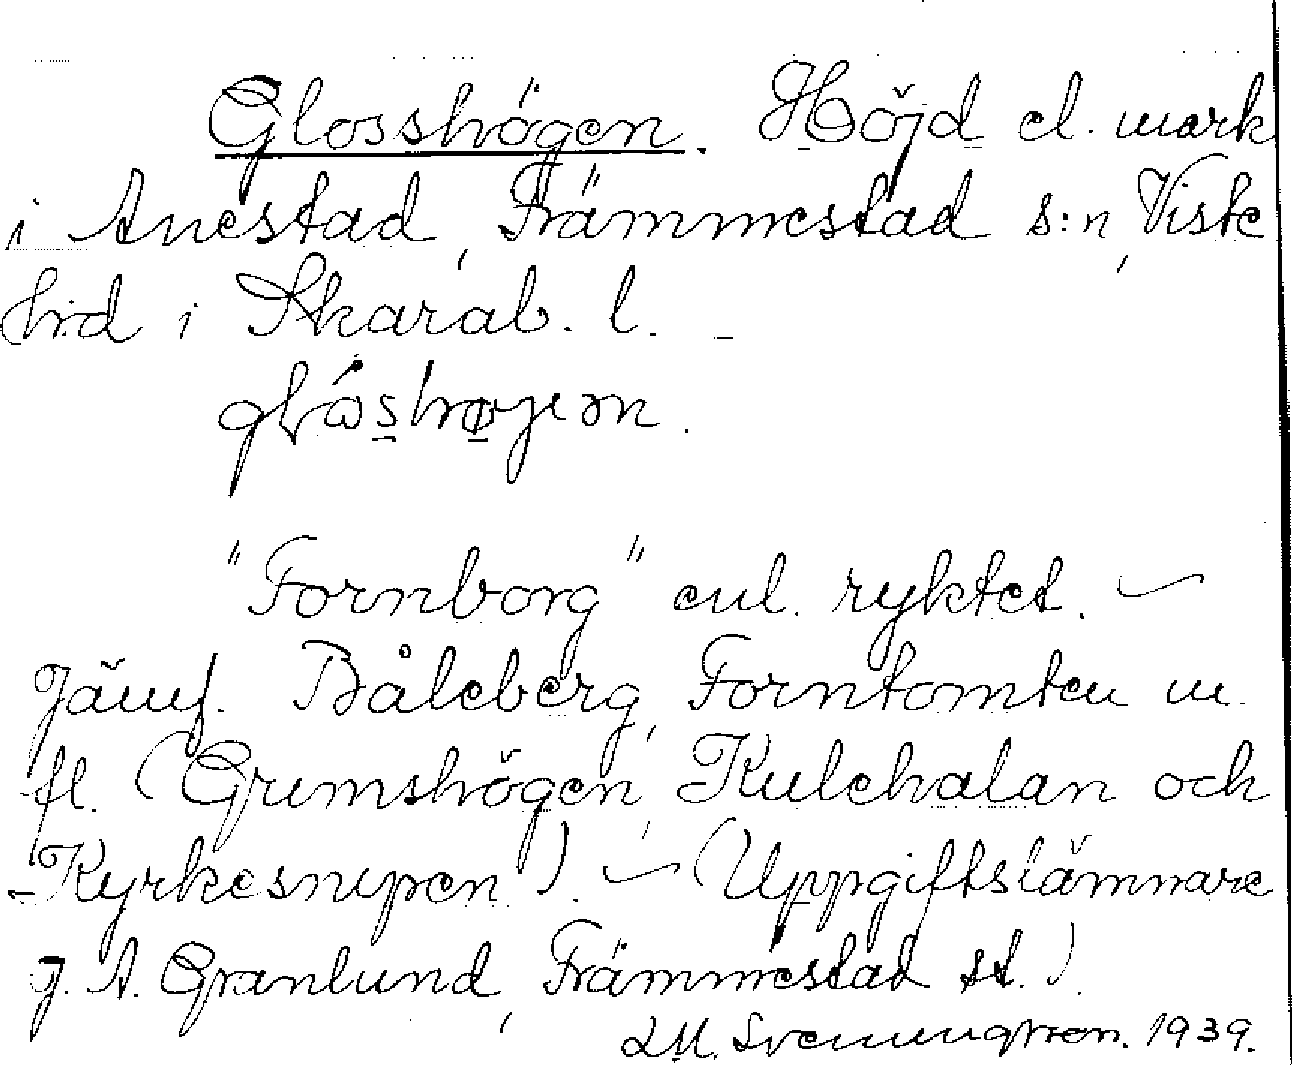 Glosshögen. Höjd el. mark
i Anestad, Främmestad s:n, Viste
hrd i Skarab. l. –
"Fornborg" enl. ryktet. –
Jämf. Båleberg, Forntomten m.
fl. (Grimshögen, Kulehalan och
Kyrkesnipen). – (Uppgiftslämnare
J. A. Granlund, Främmestad st.).
1939.